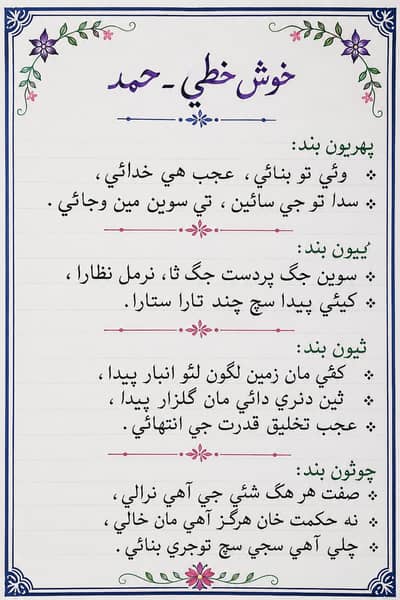 خوش خطي ـ حمد
پهريون بند:
وئي تو بنائي ، عجب هي خدائي ،
سدا تو جي سائين ، تي سوين مين وجائي .
ٻيون بند:
سوين جگ پردست جگ ثا، نرمل نظارا ،
کيئي پيدا سچ چند تارا ستارا.
ٿيون بند:
کڻي مان زمين لگون لئو انبار پيدا ،
ٿين دنري دائي مان گلزار پيدا ،
عجب تخليق قدرت جي انتهائي .
چوٿون بند:
صفت هر هگ شئي جي آهي نرالي ،
نه حکمت خان هرگز آهي مان خالي ،
چلي آهي سجي سچ توجري بنائي .